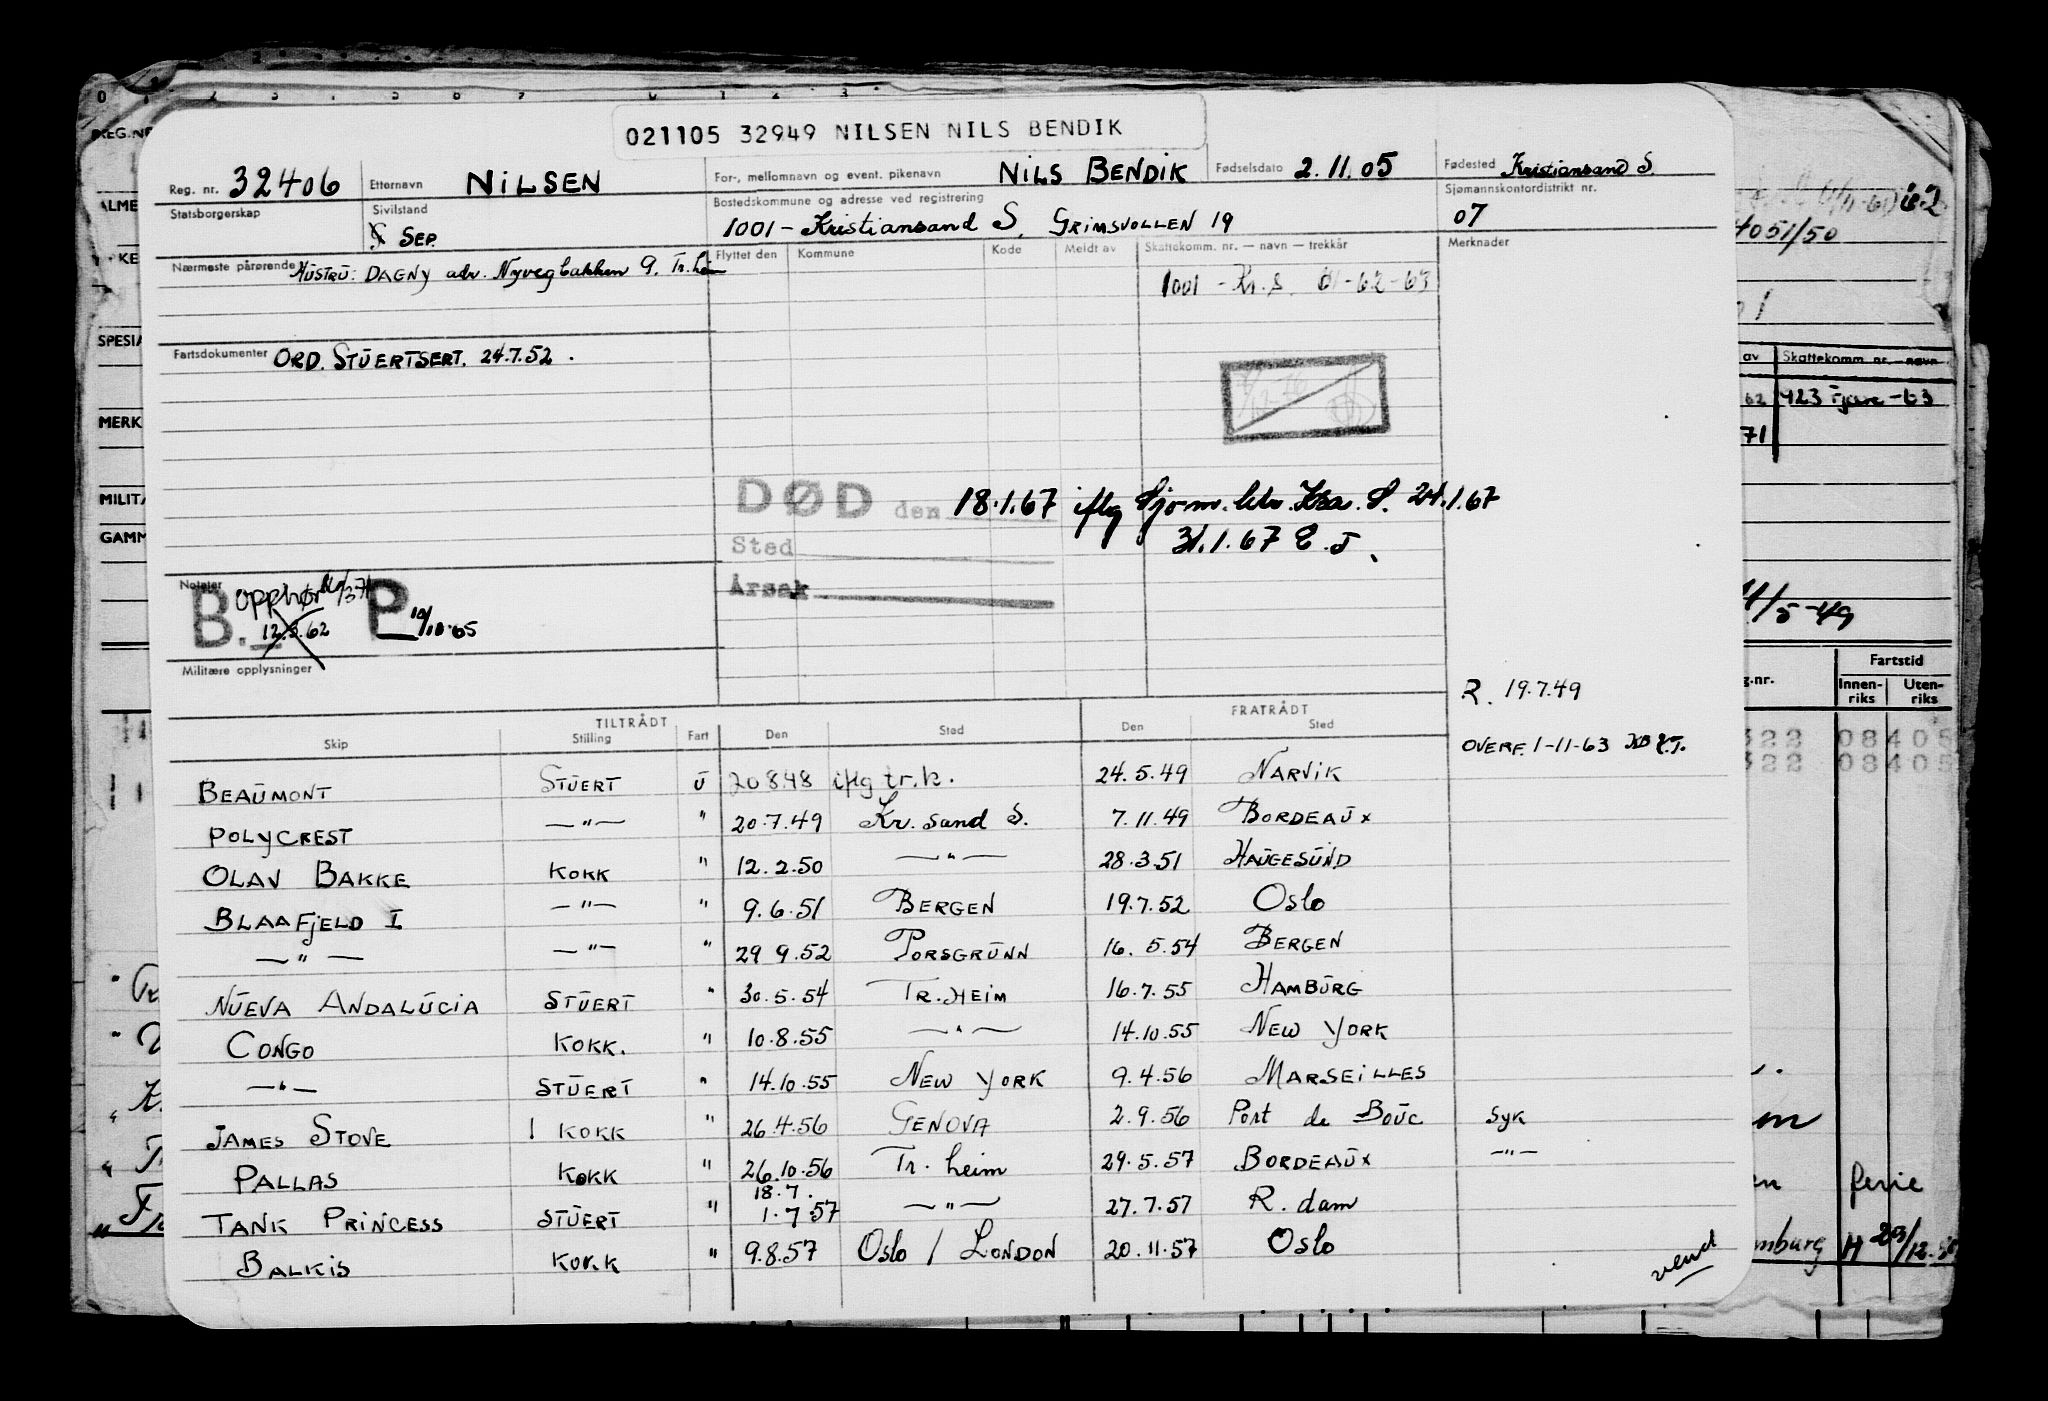 021105 32949 NILSEN NILS BENDIK
Reg. nr. 32406 Etternavn NILSEN For-, mellomnavn og event. pikenavn NILS BENDIK Fødselsdato 2.11.05 Fødested Kristiansand S.
Statsborgerskap Sivilstand SEP. Bostedskommune og adresse ved registrering 1001 - Kristiansand S. GRIMSVOLLEN 19 Sjømannskontordistrikt nr. 07
Nærmeste pårørende HUSTRU: DAGNY adr. Nyvegbakken 9. Tr.heim
Flyttet den Kommune Kode Meldt av Skattekomm. nr. — navn — trekkår Merknader
1001 - Kr.S. 61-62-63
Fartsdokumenter ORD. STUERTSERT. 24.7.52.
DØD den 18.1.67 iflg Sjøm.ktr. Kra. S. 24.1.67
31.1.67 E.J.
Sted
Årsak
Notater
B. Opphør
12.3.62
P 10/10.65
Militære opplysninger
R. 19.7.49
OVERF. 1-11-63
TILTRÅDT FRATRÅDT
Skip Stilling Fart Den Sted Den Sted
BEAUMONT STUERT U 20848 iflg tr.k. 24.5.49 NARVIK
POLYCREST —"— " 20.7.49 Kr. sand S. 7.11.49 BORDEAUX
OLAV BAKKE KOKK " 12.2.50 —"— 28.3.51 HAUGESUND
BLAAFJELD I —"— " 9.6.51 BERGEN 19.7.52 Oslo
—"— —"— " 29 9.52 PORSGRUNN 16.5.54 BERGEN
NUEVA ANDALUCIA STUERT " 30.5.54 TR.HEIM 16.7.55 HAMBURG
CONGO KOKK. " 10.8.55 —"— 14.10.55 NEW YORK
—"— STUERT " 14.10.55 NEW YORK 9.4.56 MARSEILLES
JAMES STOVE 1 KOKK " 26.4.56 GENOVA 2.9.56 Port de BOUC syk
PALLAS KOKK " 26.10.56 Tr. heim 29.5.57 BORDEAUX —"—
18.7.
TANK PRINCESS STUERT " 1.7.57 —"— 27.7.57 R. dam
BALKIS KOKK " 9.8.57 Oslo / LONDON 20.11.57 Oslo
vend
REG.NR
SPESIA
MERK
MILITÆ
GAMM
4051/50
av Skattekomm. nr. — navn
62 923 Fjære -63
71
11/5-49
Fartstid
g.nr. Innen-riks Uten-riks
322 08405
322 08405
ferie
mburg H 29/12.